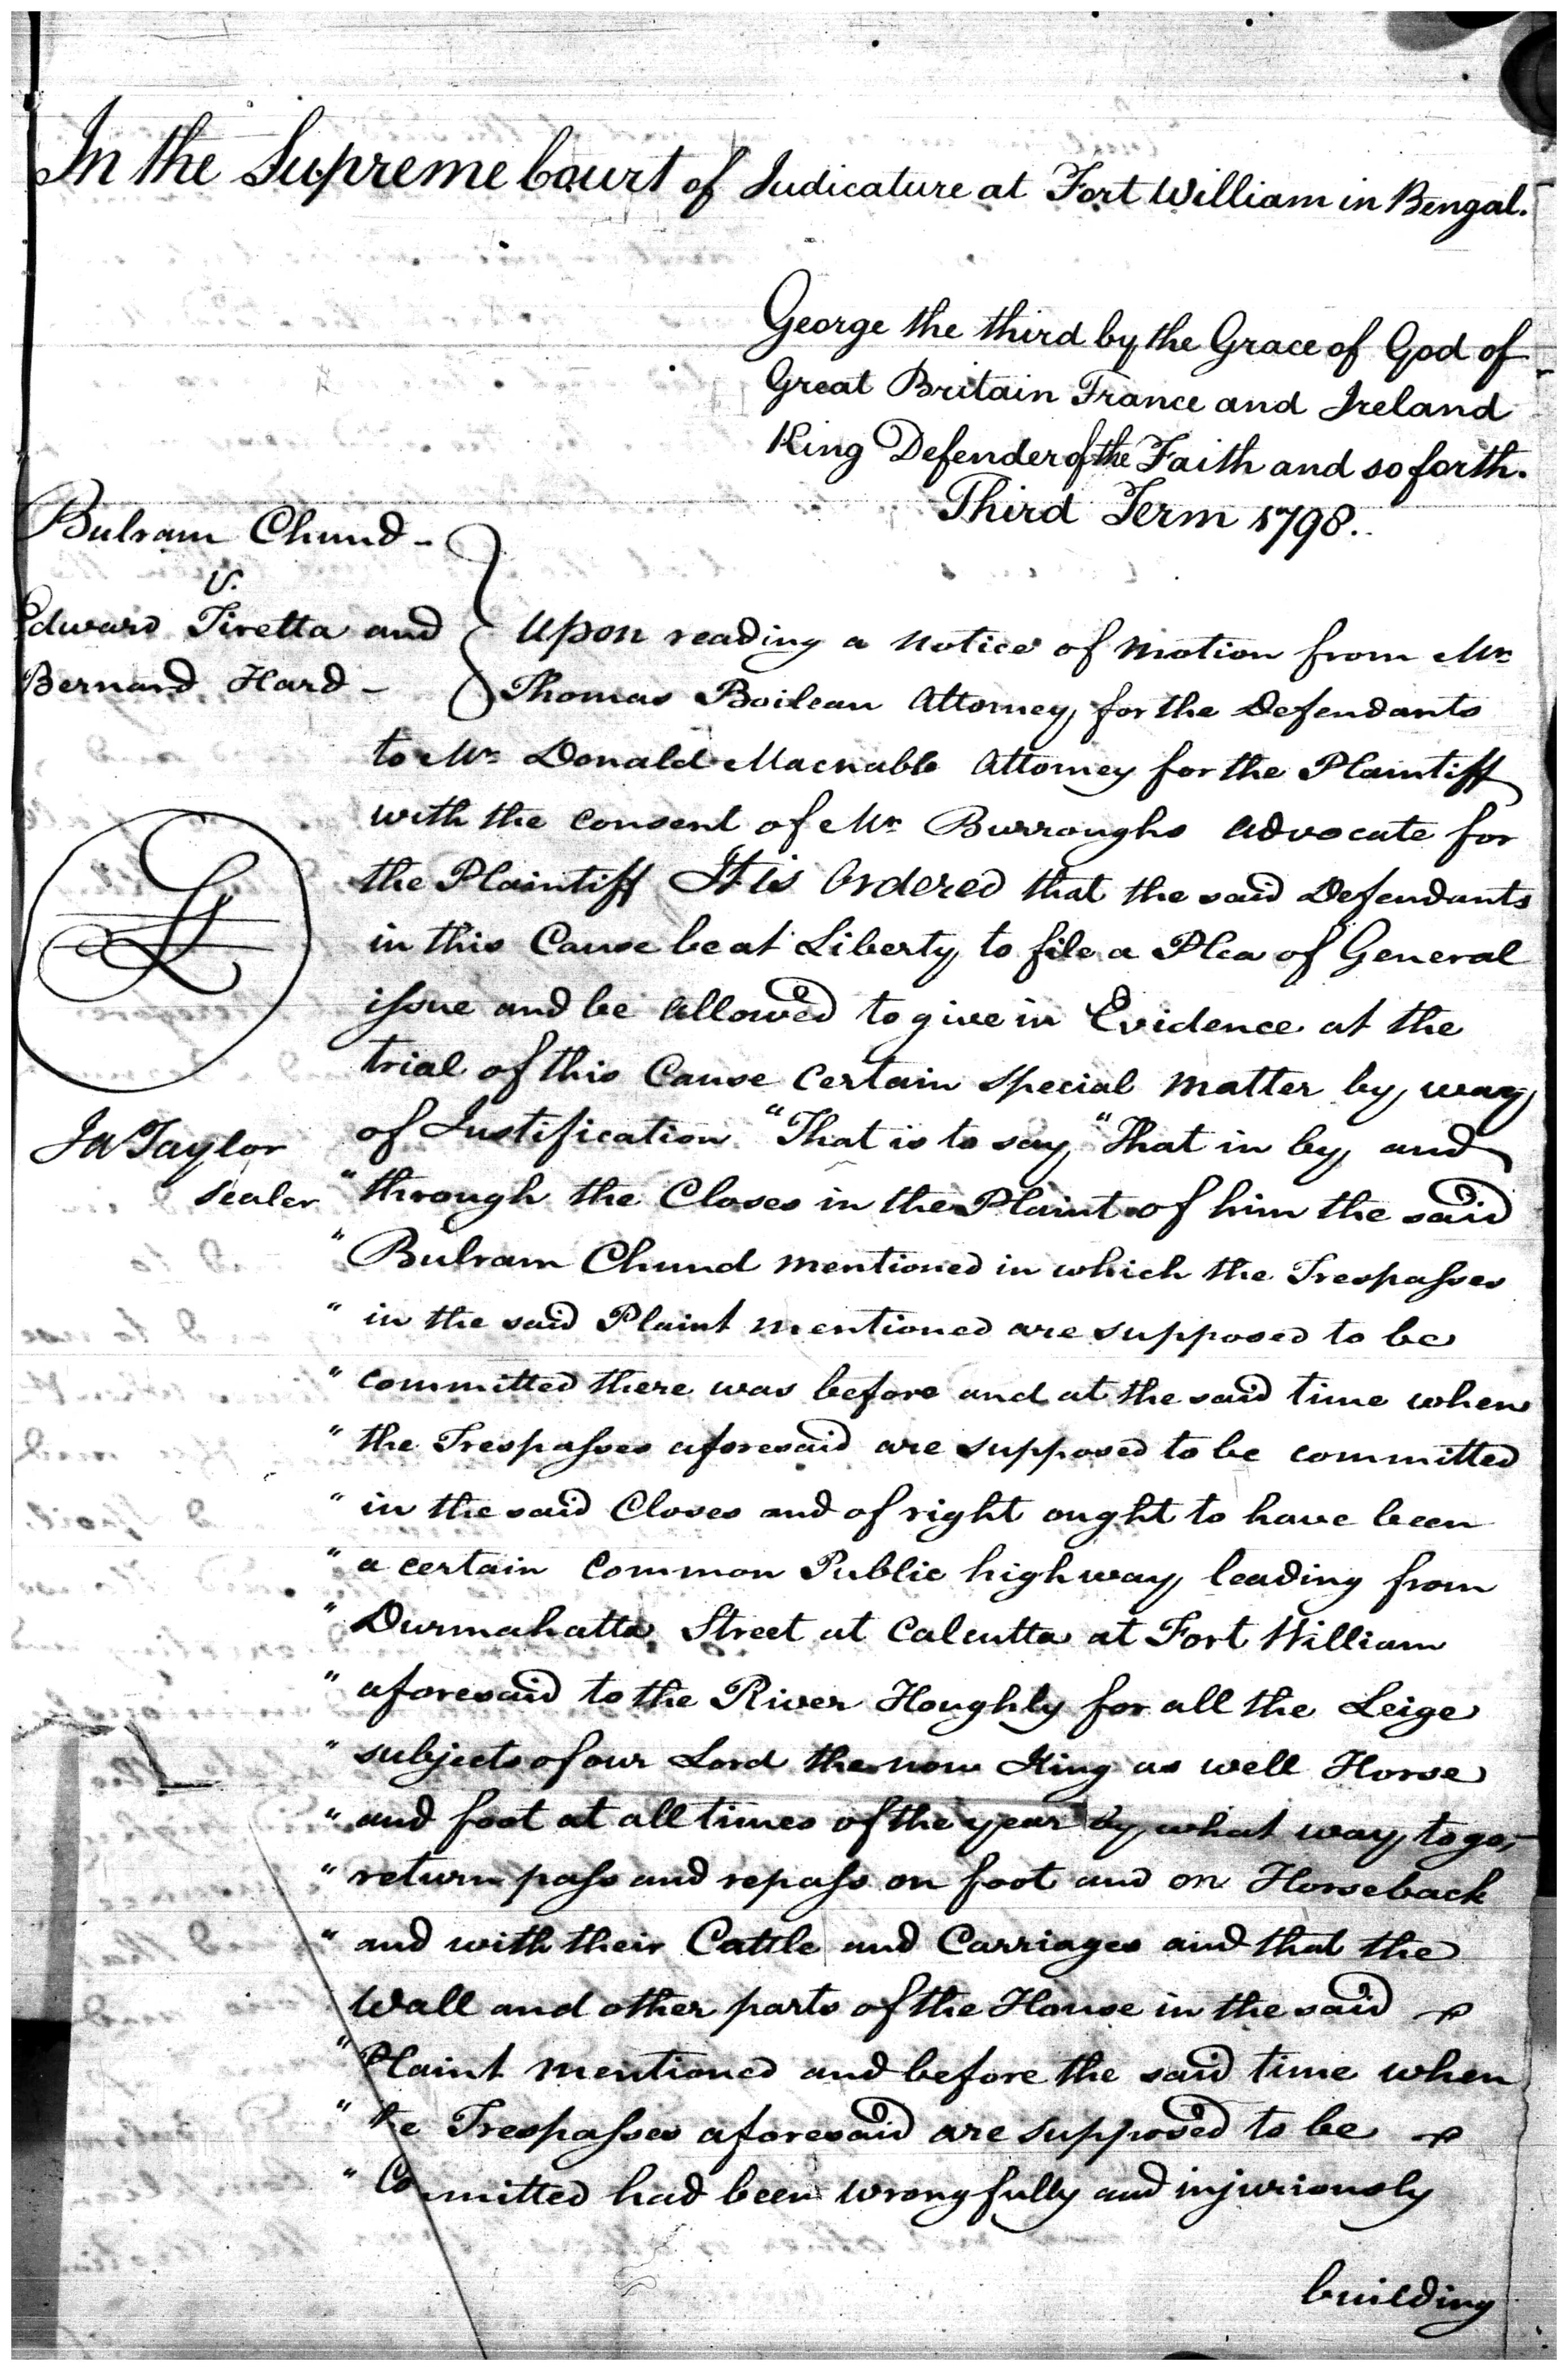 In the Supreme Court of Judicature at Fort William in Bengal.
George the third by the Grace of God of
Great Britain France and Ireland
King Defender of the Faith and so forth.
Third Term 1798.
Bulram Chund -
v.
Edward Tiretta and
Bernard Hard -
Upon reading a Notice of Motion from Mr
Thomas Boileau Attorney for the Defendants
to Mr Donald Macnabb Attorney for the Plaintiff
with the consent of Mr Burroughs Advocate for
the Plaintiff It is Ordered that the said Defendants
in this Cause be at Liberty to file a Plea of General
issue and be allowed to give in Evidence at the
trial of this Cause Certain Special Matter by way
of Justification "That is to say "That in by and
"through the Closes in the Plaint of him the said
"Bulram Chund mentioned in which the Trespasses
"in the said Plaint mentioned are supposed to be
"committed there was before and at the said time when
"the Trespasses aforesaid are supposed to be committed
"in the said Closes and of right ought to have been
"a certain Common Public highway leading from
"Durmahatta Street at Calcutta at Fort William
"aforesaid to the River Houghly for all the Leige
"subjects of our Lord the now King as well Horse
"and foot at all times of the year by what way to go,
"return pass and repass on foot and on Horseback
"and with their Cattle and Carriages and that the
Wall and other parts of the House in the said
"Plaint mentioned and before the said time when
"the Trespasses aforesaid are supposed to be
"Committed had been wrongfully and injuriously
building
Ja Taylor
Sealer